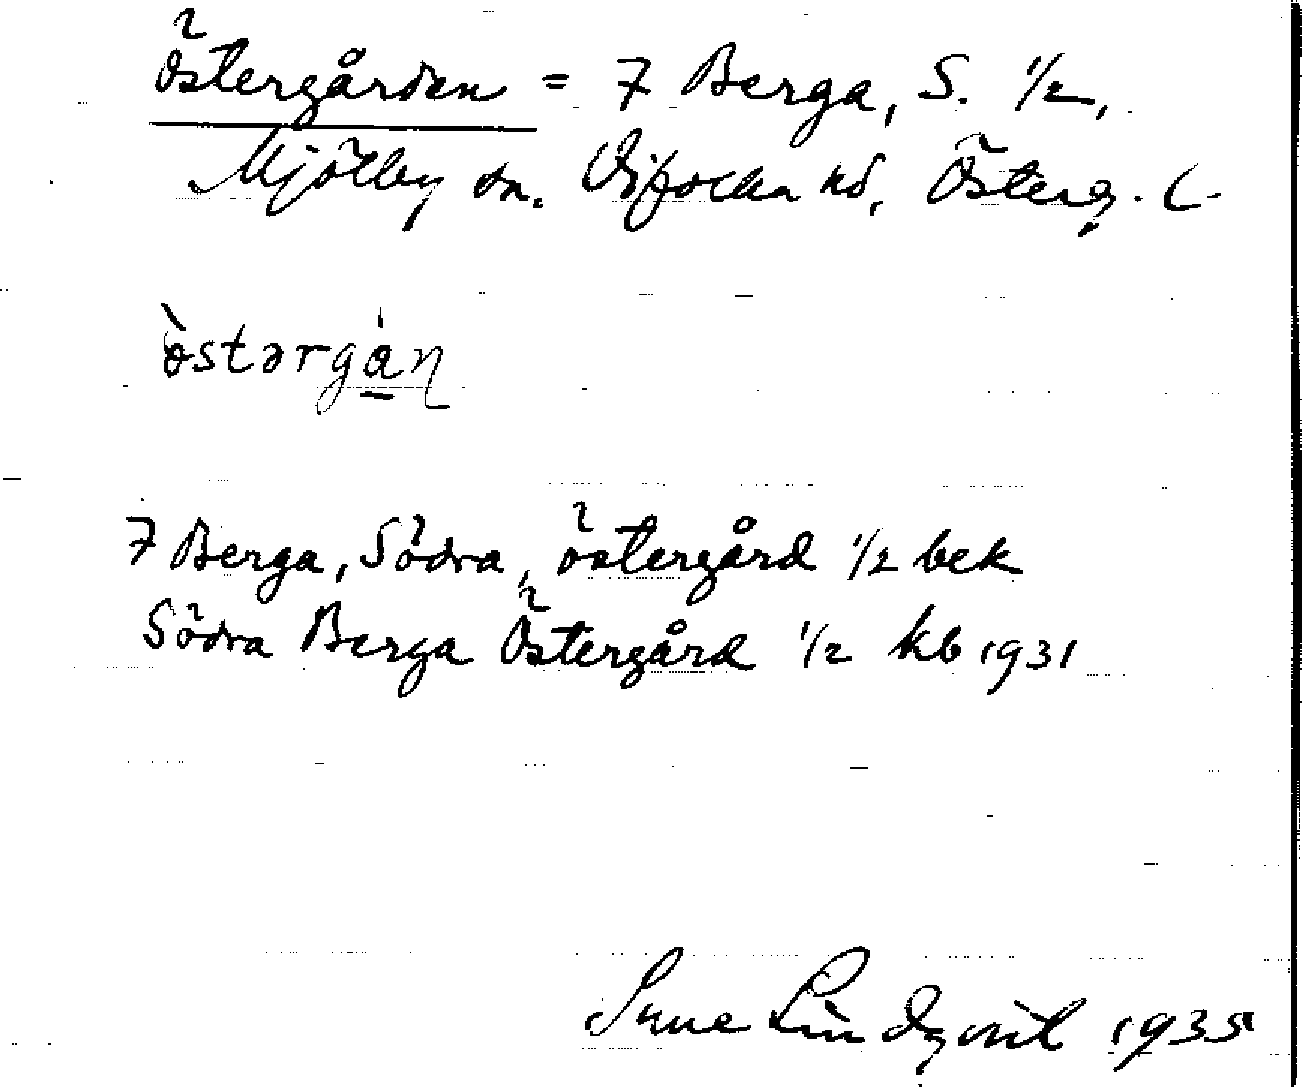 Östergården = 7 Berga, S. 1/2,
Mjölby sn. Vifolka hd, Österg. L
òstərgɑ̀n̡
7 Berga, Södra, östergård 1/2 bek
Södra Berga Östergård 1/2 kb 1931
Sune Lindqvist 1935